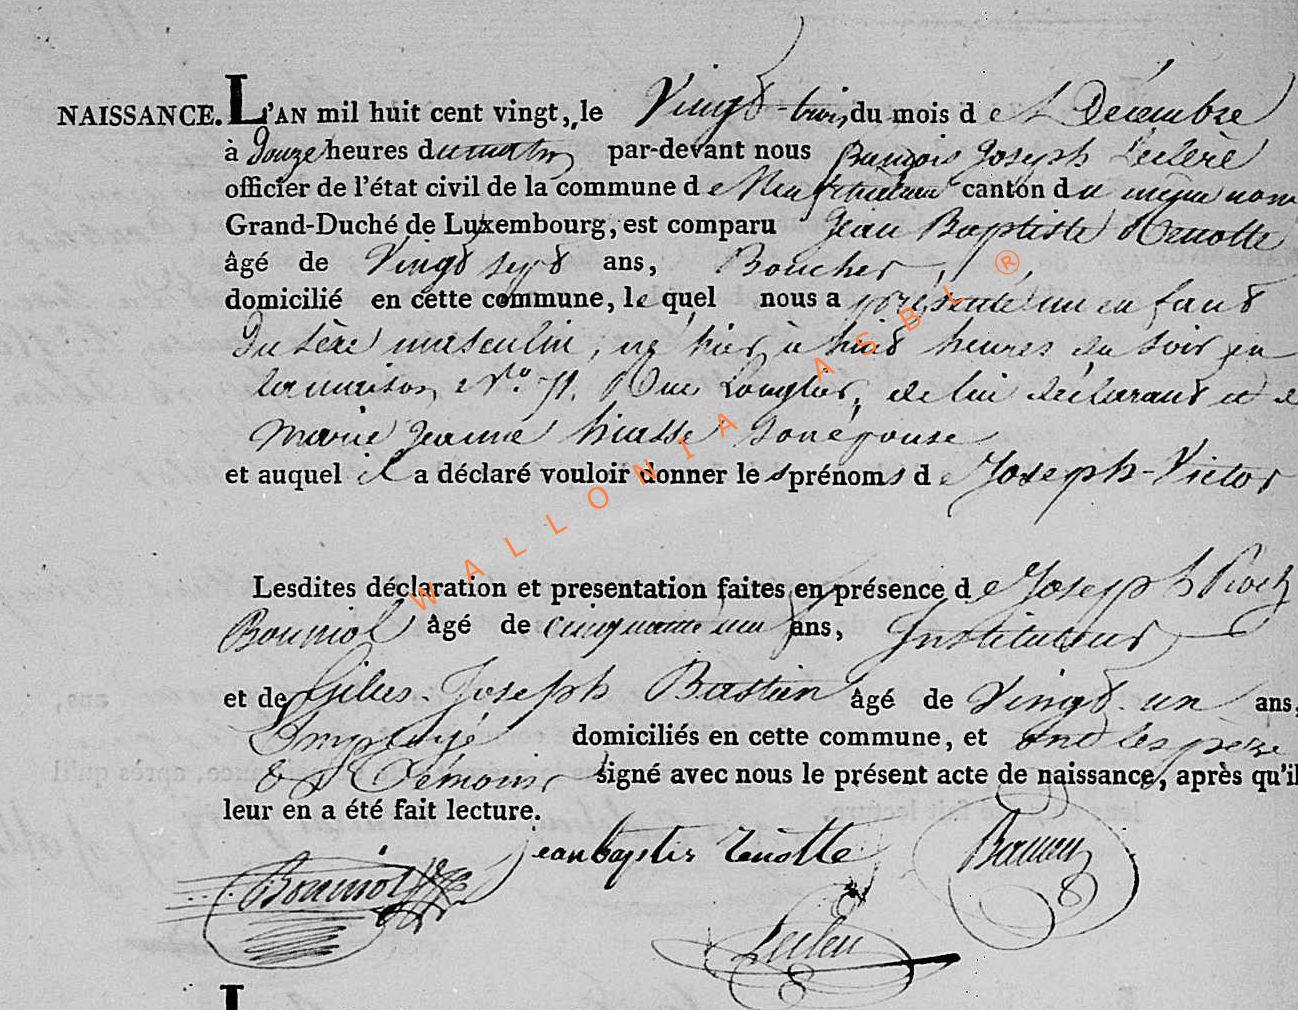 NAISSANCE. L'AN mil huit cent vingt, le Vingt-trois du mois de Décembre
à Douze heures du matin par-devant nous François Joseph Leclère
officier de l'état civil de la commune de Neufchateau canton du même nom
Grand-Duché de Luxembourg, est comparu Jean Baptiste Renotte
âgé de Vingt sept ans, Boucher,
domicilié en cette commune, le quel nous a présenté un enfant
Du sèxe masculin, né hier à huit heures du soir en
la maison N.º 71. Rue Longlier, de lui déclarant et de
Marie Jeanne hiasse son épouse
et auquel il a déclaré vouloir donner les prénoms de Joseph-Victor
Lesdites déclaration et presentation faites en présence de Joseph Roch
Bouniol âgé de cinquante un ans, Instituteur
et de Gilles-Joseph Bastien âgé de Vingt-un ans,
Employé domiciliés en cette commune, et ont les père
& Témoins signé avec nous le présent acte de naissance, après qu'il
leur en a été fait lecture.
jean baptiste renotte
Bouniol
WALLONIA ASBL ®
L